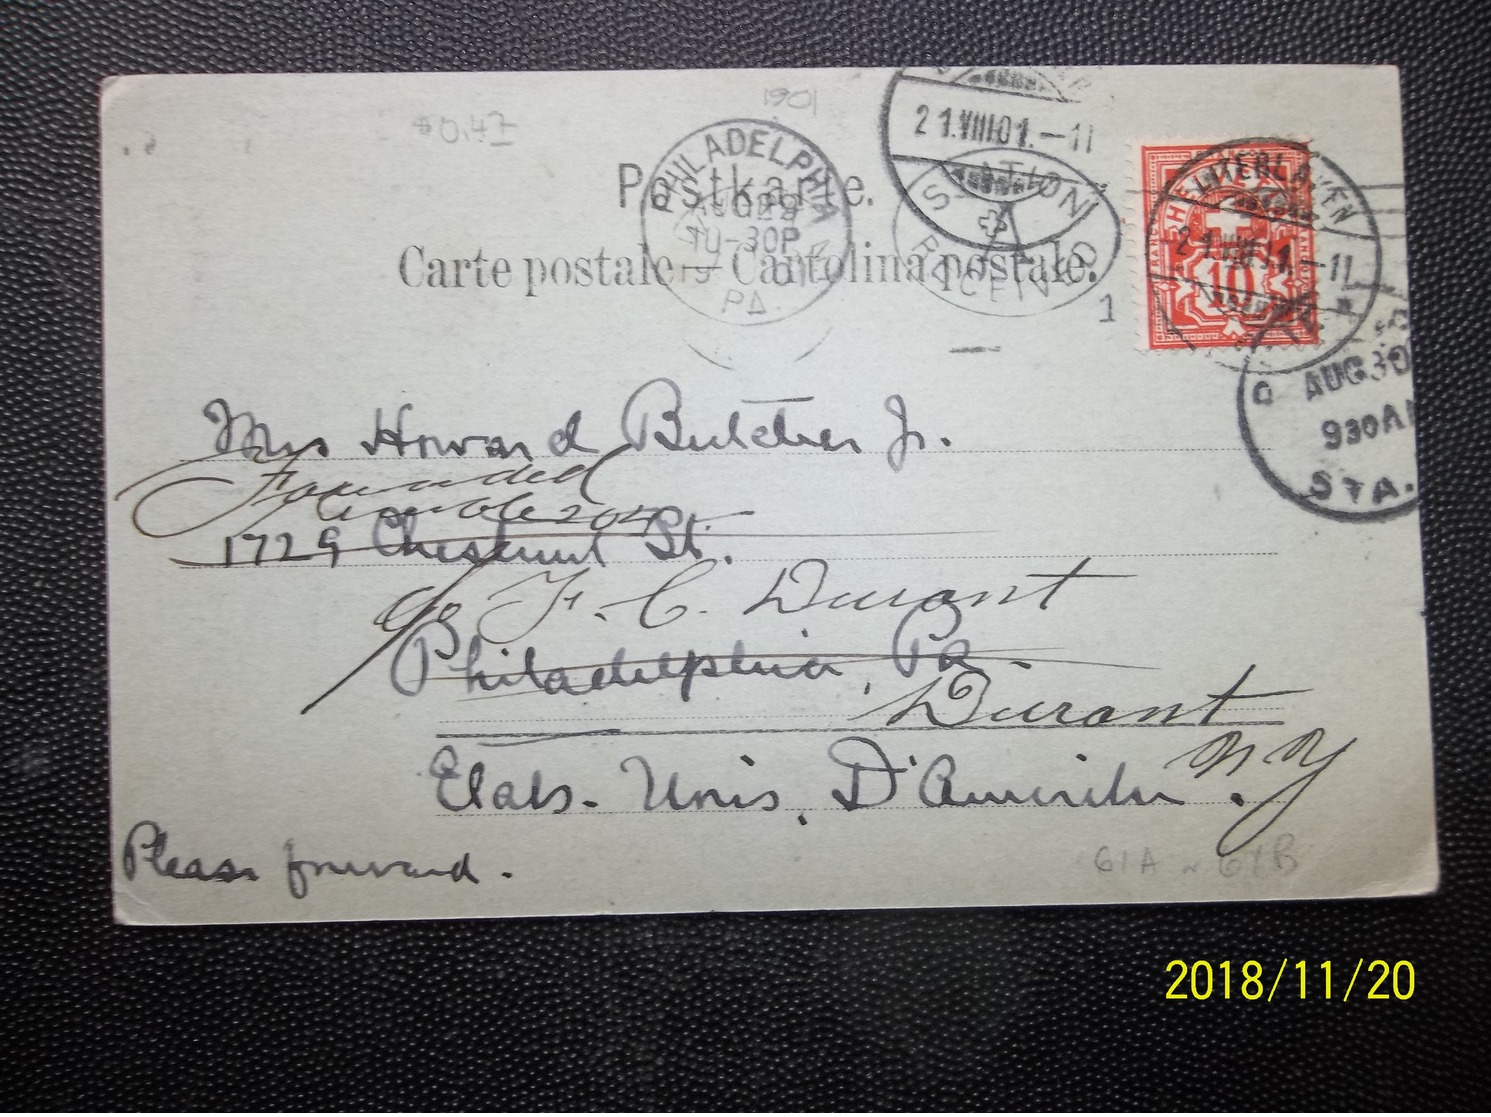 $0.47
1901
21.VIII01.—11
PHILADELPHIA
AUG 29
10-30P
PA.
STATION
RECEIVED
Postkarte.
Carte postale — Cartolina postale.
1
HELVETIA
FRANCO
10
INTERLAKEN
21.VIII01.—11
AUG 30
930A
STA.
Mrs Howard Butcher Jr.
1729 Chestnut St.
c/o F. C. Durant
Philadelphia, Pa.
Durant
N Y
Etats-Unis, D'Amérike.
Please forward.
61A ~ 61B
2018/11/20